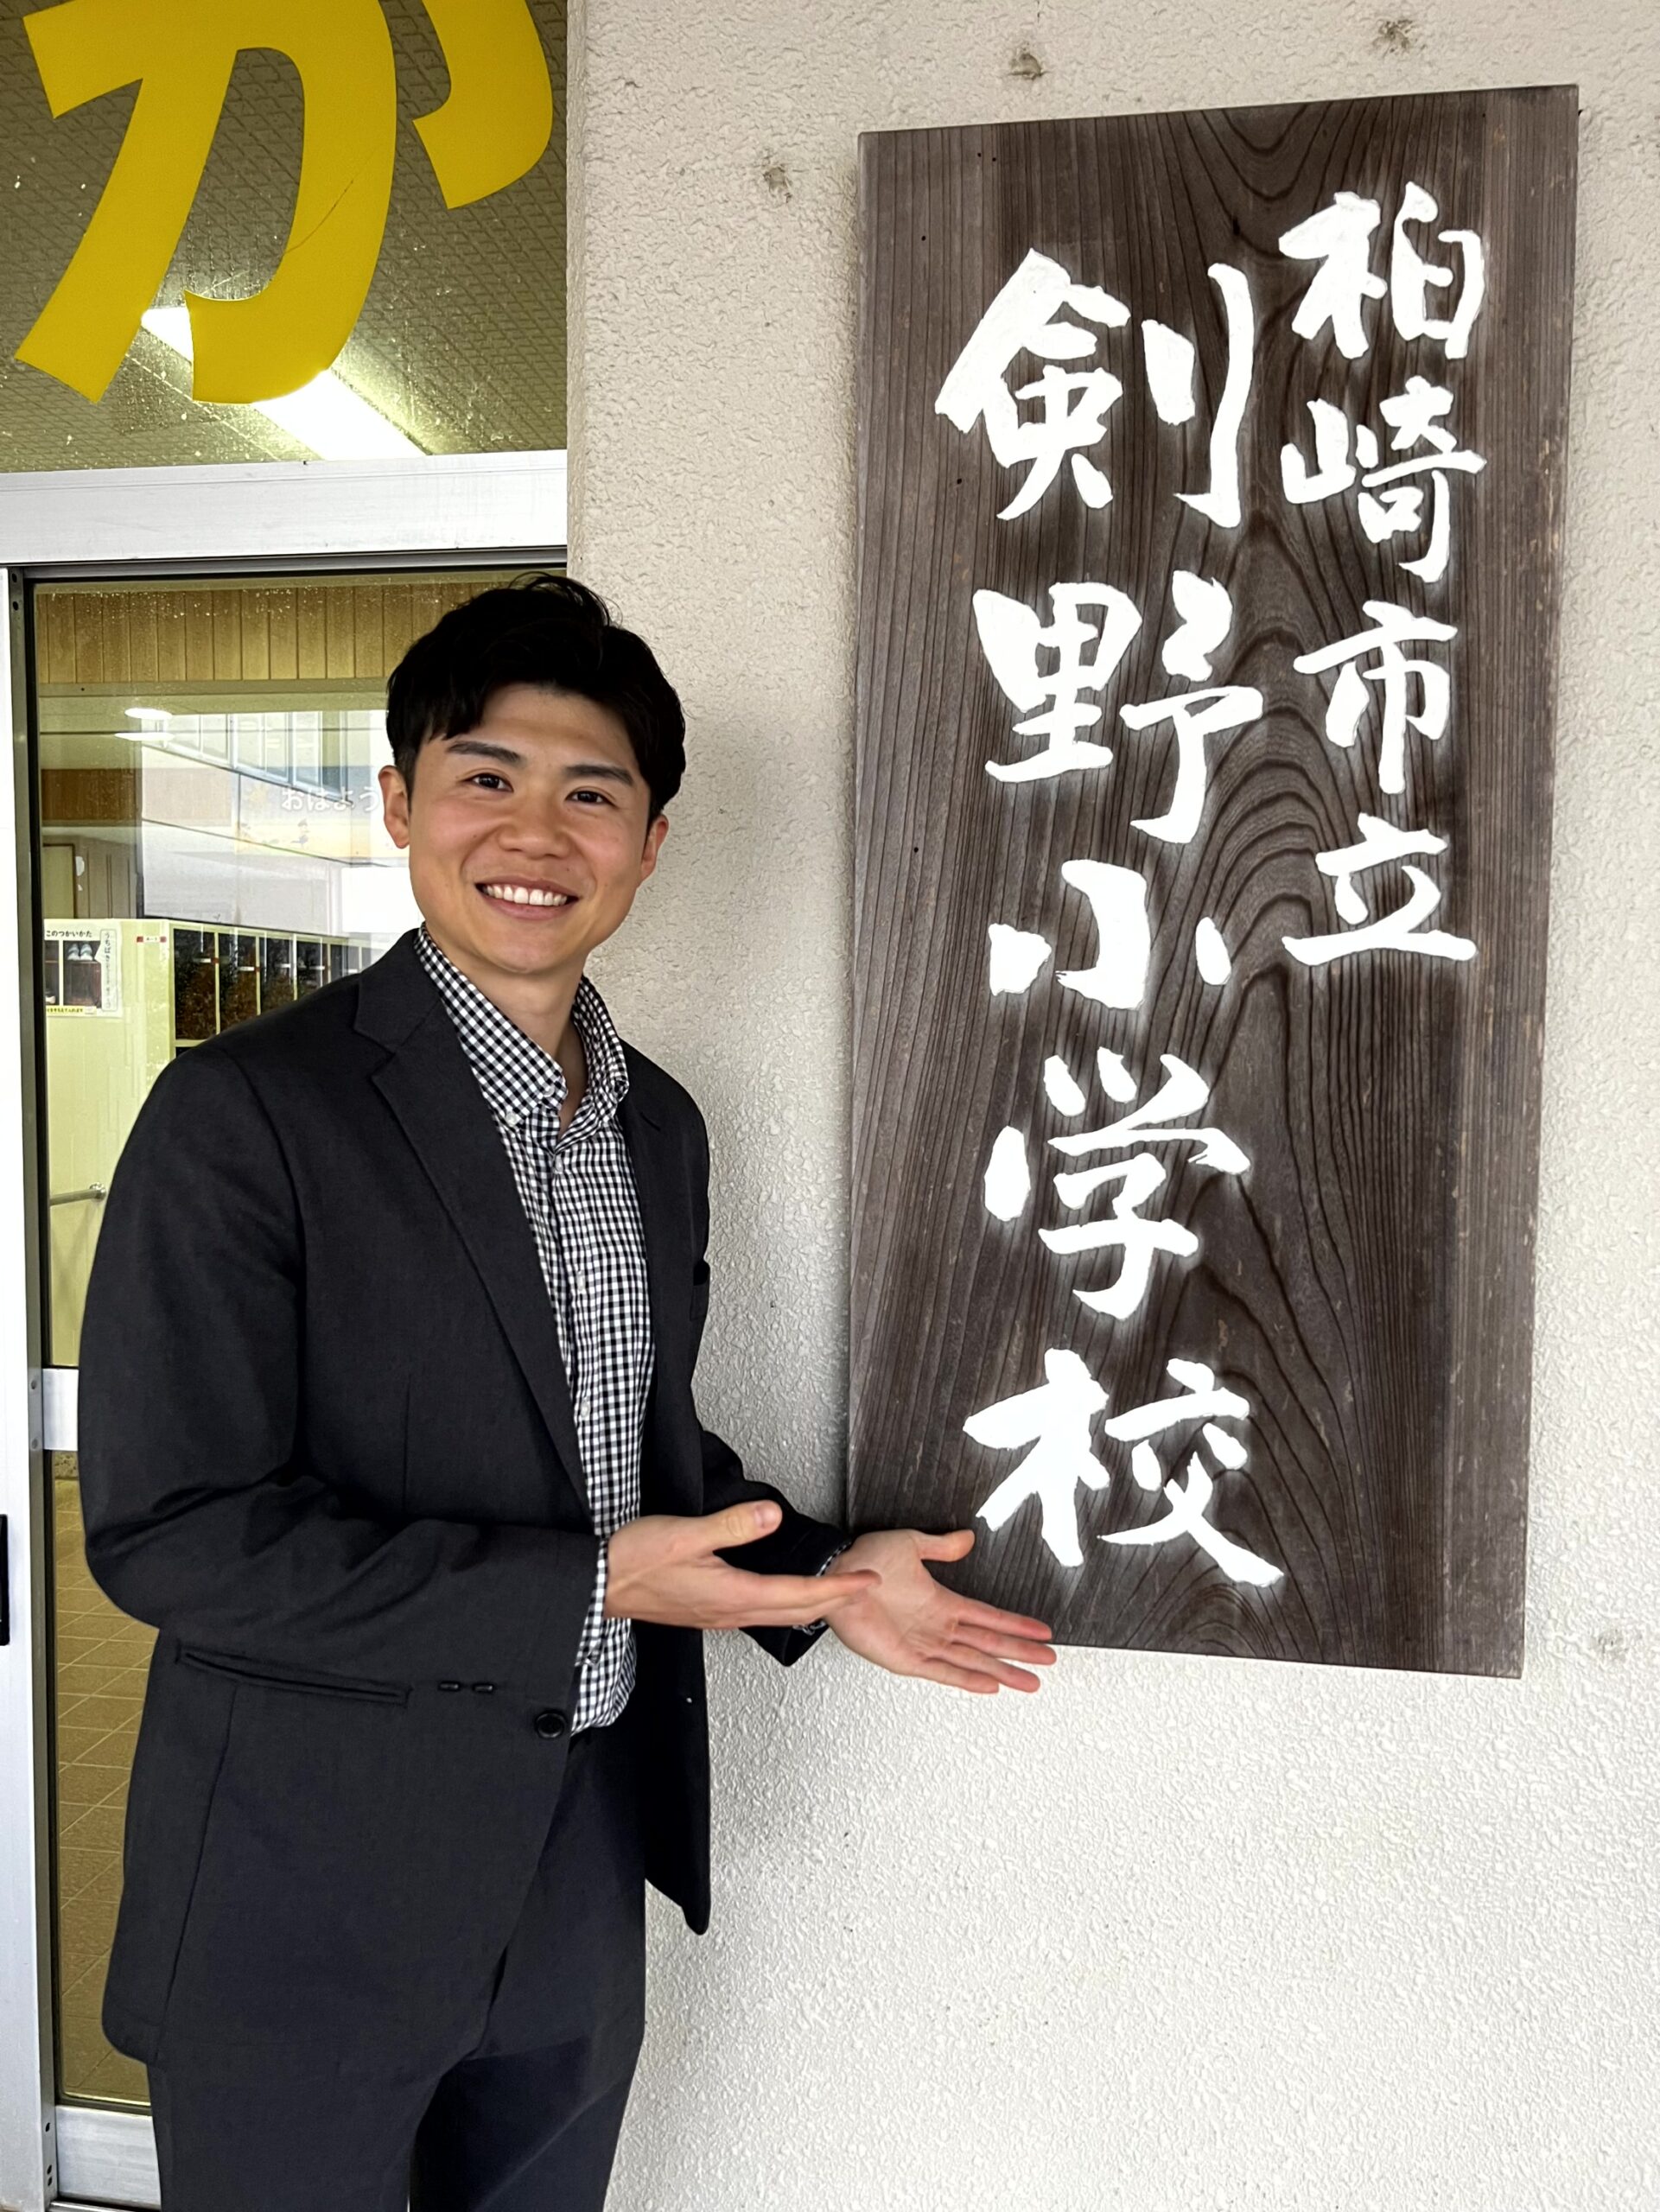 柏崎市立
剣野小学校
か
おはよう
このつかいかた